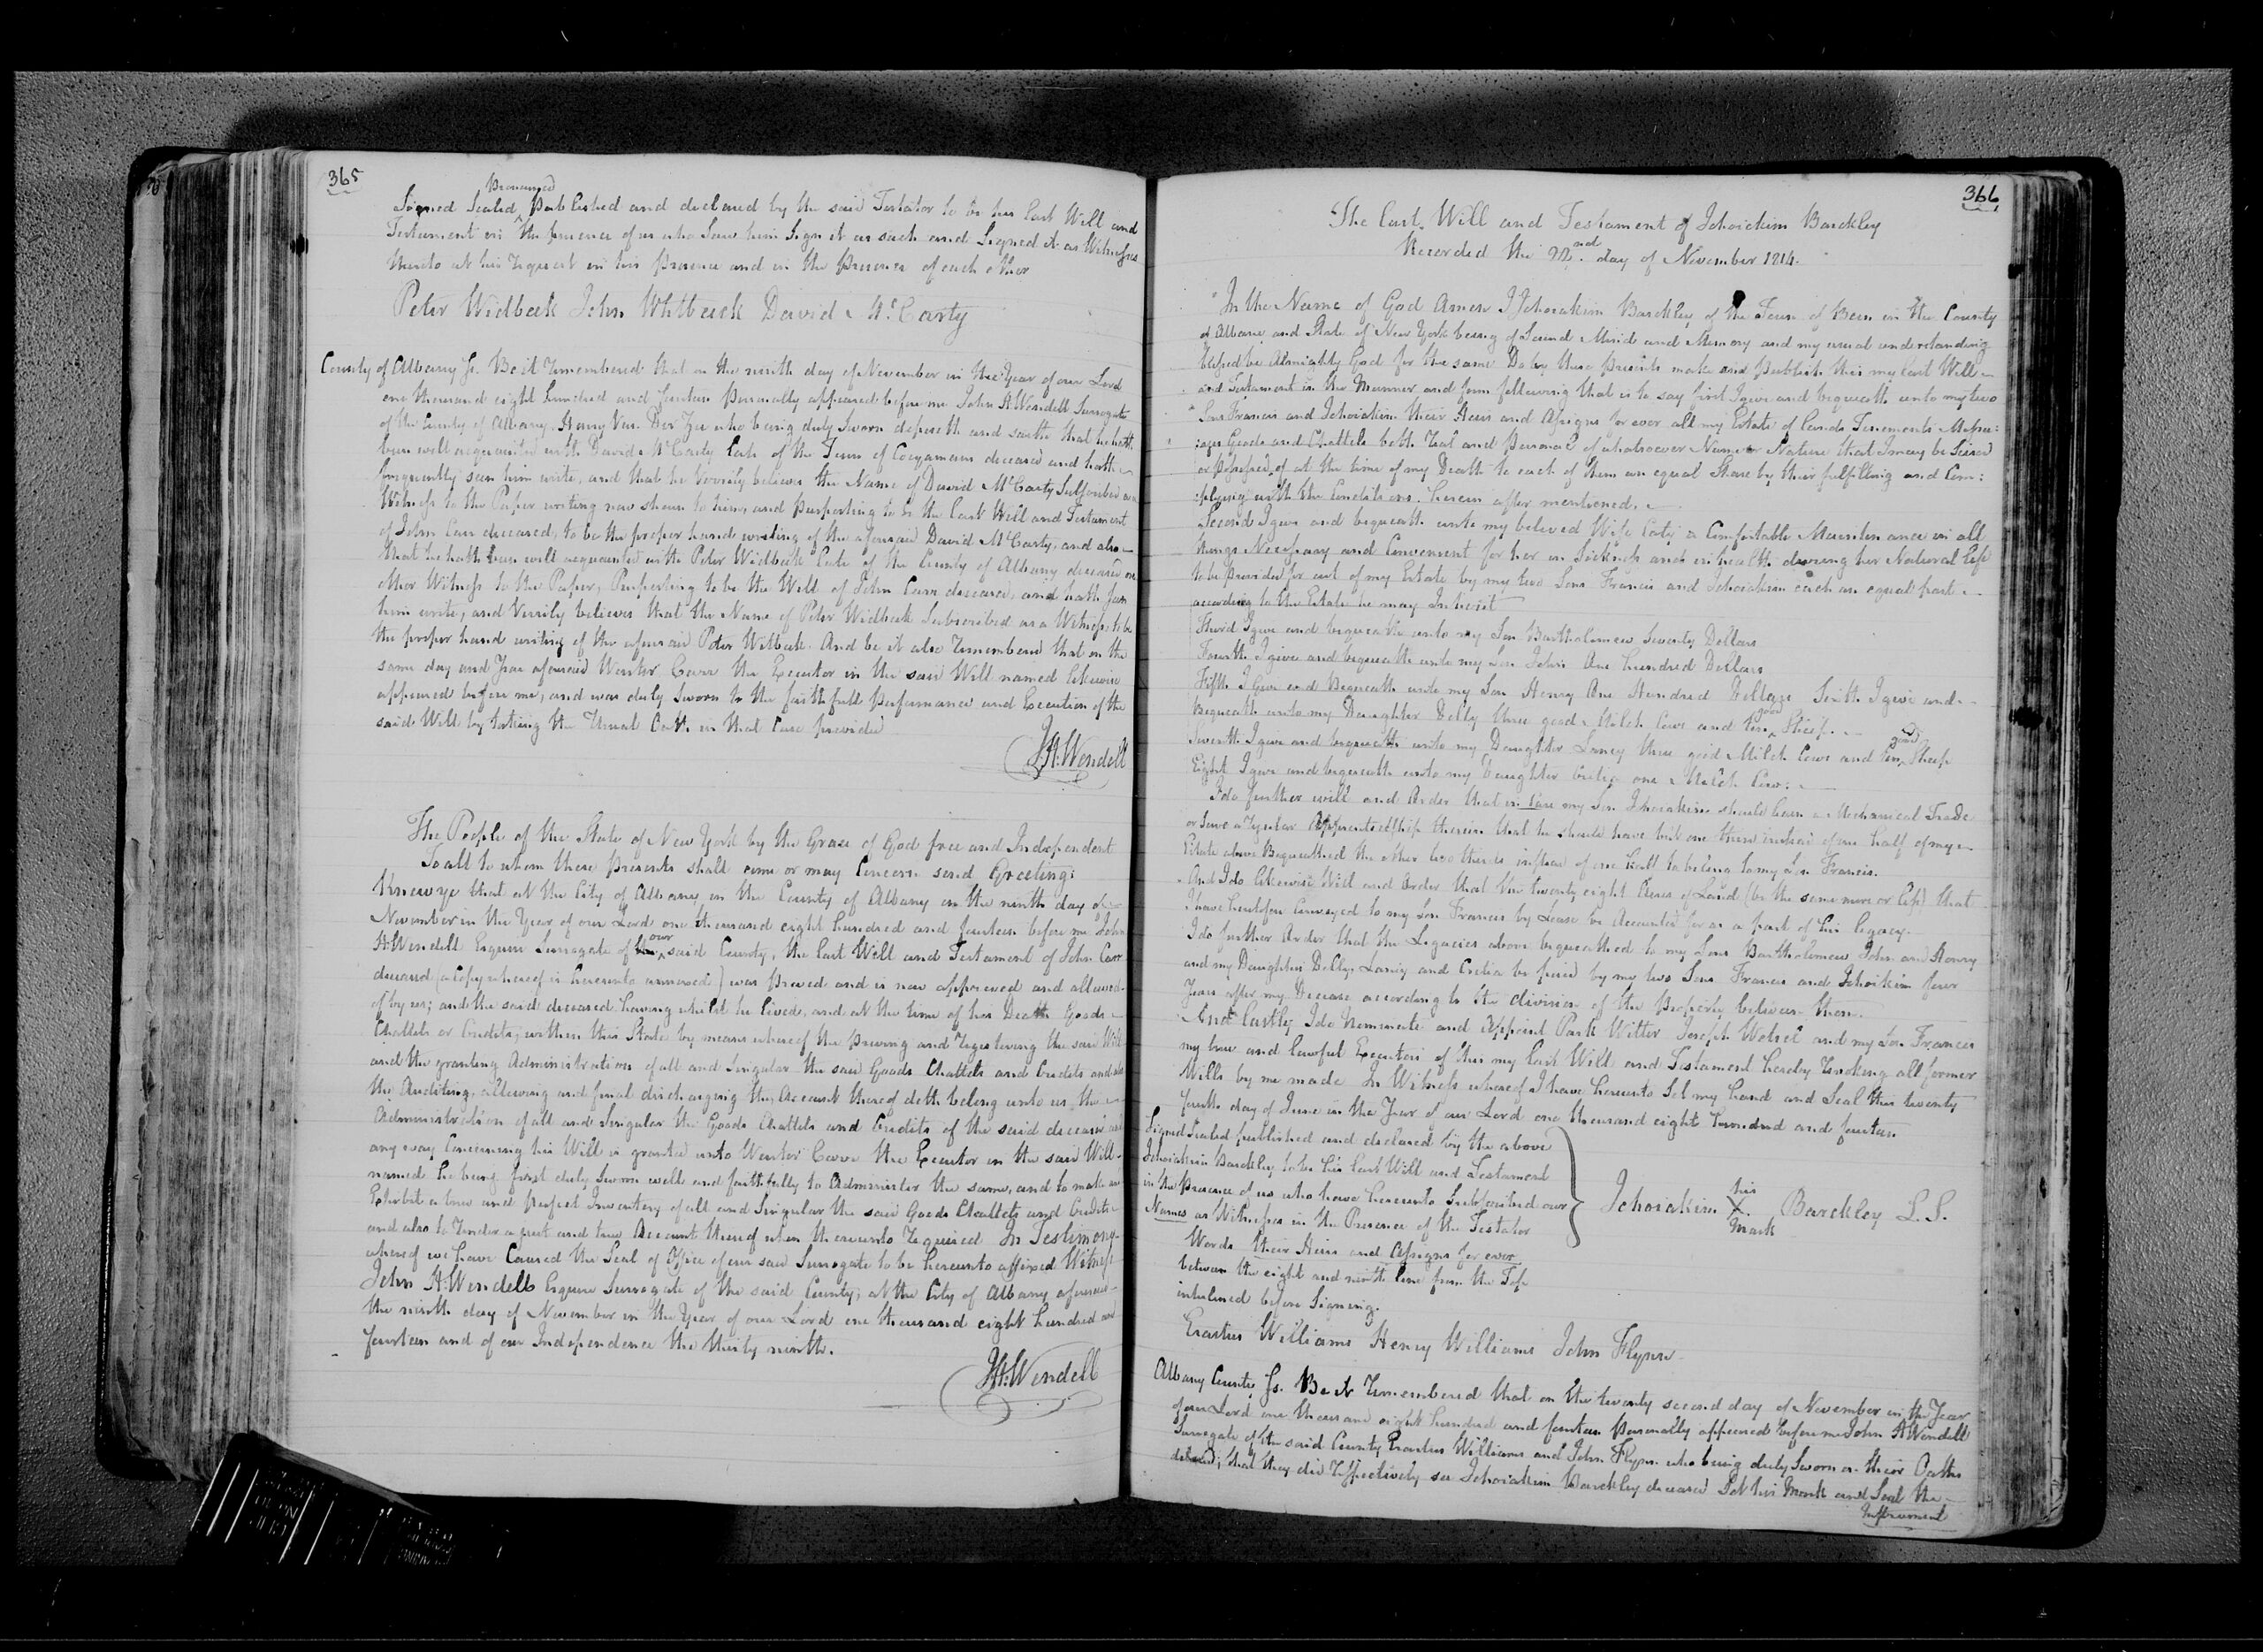 365
Pronounced
Signed Sealed ^ Published and declared by the said Testator to be his last Will and
Testament in the presence of us who saw him Sign it as such and Signed it as Witnesses
thereto at his request in his presence and in the presence of each other
Peter Widbeck John Whitbeck David McCarty
County of Albany Ss. Be it Remembered that on the ninth day of November in the Year of our Lord
one thousand eight hundred and fourteen personally appeared before me John H Wendell Surrogate
of the County of Albany. Harry Van Der Zee who being duly Sworn deposeth and saith that he hath
been well acquainted with David McCarty Late of the Town of Coeymans deceased and hath
frequently seen him write, and that he Verily believes the Name of David McCarty Subscribed as a
Witness to the Paper writing now shown to him, and purporting to be the Last Will and Testament
of John Carr deceased, to be the proper hand writing of the aforesaid David McCarty, and also
that he hath been well acquainted with Peter Widbeck Late of the County of Albany deceased one
other Witness to the Paper, Purporting to be the Will of John Carr deceased, and hath seen
him write, and Verily believes that the Name of Peter Widbeck Subscribed as a Witness, to be
the proper hand writing of the aforesaid Peter Witbeck. And be it also Remembered that on the
same day and Year aforesaid Wenter Carr the Executor in the said Will named likewise
appeared before me, and was duly Sworn to the faithfull Performance and Execution of the
said Will by taking the Usual Oath in that Case provided
J.H. Wendell
The People of the State of New York by the Grace of God free and Independent
To all to whom these Presents shall come or may Concern send Greeting:
Know ye that at the City of Albany in the County of Albany on the ninth day of
November in the Year of our Lord one thousand eight hundred and fourteen before me John
H Wendell Esquire Surrogate of our said County, the Last Will and Testament of John Carr
deceased (a Copy whereof is hereunto annexed) was Proved and is now approved and allowed
of by us; and the said deceased having whilst he lived, and at the time of his Death Goods
Chattels or Credits, within this State by means whereof the Proving and Registering the said Will
and the granting Administration of all and Singular the said Goods Chattels and Credits and also
the Auditing, allowing and final discharging the Account thereof doth belong unto us, the
Administration of all and Singular the Goods Chattels and Credits of the said deceased and
any way Concerning his Will is granted unto Wenter Carr the Executor in the said Will
named he being first duly Sworn well and faithfully to Administer the same, and to make and
Exhibit a true and perfect Inventory of all and Singular the said Goods Chattels and Credits
and also to Render a just and true Account thereof when thereunto Required In Testimony
whereof we have Caused the Seal of Office of our said Surrogate to be hereunto affixed Witness
John H. Wendell Esquire Surrogate of the said County, at the City of Albany aforesaid
the ninth day of November in the Year of our Lord one thousand eight hundred and
fourteen and of our Independence the thirty ninth.
J.H. Wendell
366
The Last Will and Testament of Jehoiakim Barckley
Recorded the 22nd day of November 1814.
In the Name of God Amen I Jehoiakim Barckley of the Town of Bern in the County
of Albany and State of New York being of Sound Mind and Memory and my usual understanding
blessed be Almighty God for the same Do by these Presents make and Publish this my last Will
and Testament in the Manner and form following that is to say first I give and bequeath unto my two
Sons Francis and Jehoiakim their Heirs and Assigns for ever all my Estate of Lands Tenements Messu:
ages Goods and Chattels both Real and Personal of whatsoever Name or Nature that I may be Seized
or Possessed of at the time of my Death to each of them an equal Share by their fulfilling and Com:
plying with the Conditions herein after mentioned.
Second I give and bequeath unto my beloved Wife Caty a Comfortable Maintenance in all
things Necessary and Convenient for her in Sickness and in health during her Natural Life
to be Provided for out of my Estate by my two Sons Francis and Jehoiakim each an equal part
according to the Estate he may Inherit
Third I give and bequeath unto my Son Bartholomew Seventy Dollars
Fourth I give and bequeath unto my Son John One hundred Dollars
Fifth I Give and Bequeath unto my Son Henry One Hundred Dollars Sixth I give and
Bequeath unto my Daughter Dolly three good Milch Cows and ten ^ good Sheep.
Seventh I give and bequeath unto my Daughter Laney three good Milch Cows and ten ^ good Sheep
Eight I give and bequeath unto my Daughter Cretia one Milch Cow.
I do further will and Order that in Case my Son Jehoiakim should learn a Mechanical Trade
or Serve a Regular Apprenticeship therein that he should have but one third instead of one half of my
Estate above Bequeathed the other two thirds instead of one half to belong to my Son Francis.
And I do likewise Will and Order that the twenty eight Acres of Land (be the same more or less) that
I have heretofore Conveyed to my Son Francis by Lease be Accounted for as a part of his legacy.
I do further Order that the Legacies above bequeathed to my Sons Bartholomew John and Henry
and my Daughters Dolly, Laney and Cretia be paid by my two Sons Francis and Jehoikim four
Years after my Decease according to the division of the Property between them.
And lastly I do Nominate and Appoint Park Witter Joseph Wetsel and my Son Francis
my true and lawful Executors of this my last Will and Testament hereby Revoking all former
Wills by me made In Witness whereof I have hereunto Set my hand and Seal this twenty
fourth day of June in the Year of our Lord one thousand eight hundred and fourteen
Signed Sealed published and declared by the above
Jehoiakim Barckley to be his last Will and Testament
in the Presence of us who have hereunto Subscribed our
Names as Witnesses in the Presence of the Testator
Jehoiakim his X mark Barckley L.S.
Words their Heirs and Assigns for ever
between the eight and ninth line from the Top
interlined before Signing.
Erastus Williams Henry Williams John Flynn
Albany County Ss. Be it Remembered that on the twenty second day of November in the Year
of our Lord one thousand eight hundred and fourteen Personally appeared before me John H Wendell
Surrogate of the said County Erastus Williams and John Flynn who being duly Sworn on their Oaths
declared, that they did Respectively see Jehoiakim Barckley deceased Set his Mark and Seal the
Instrument